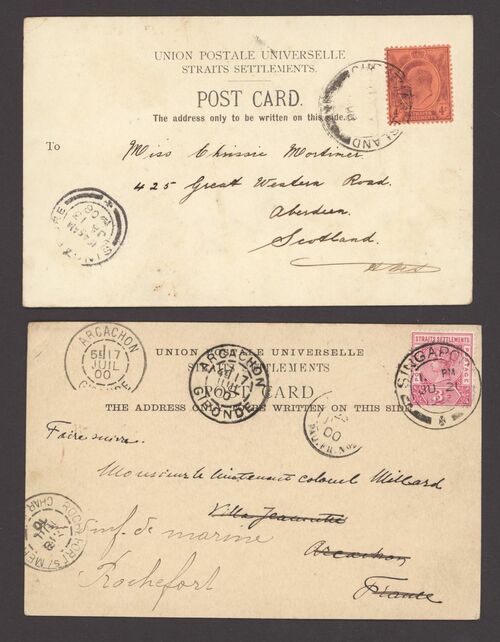 UNION POSTALE UNIVERSELLE
STRAITS SETTLEMENTS.
POST CARD.
The address only to be written on this side.
To
Miss Chrissie Mortimer
425 Great Western Road.
Aberdeen.
Scotland.
SINGAPORE
JA 13
ARCACHON
5E 17
JUIL
00
GIRONDE
UNION POSTALE UNIVERSELLE
STRAITS SETTLEMENTS
POST CARD
THE ADDRESS ONLY TO BE WRITTEN ON THIS SIDE
ARCACHON
17
GIRONDE
00
STRAITS SETTLEMENTS
POSTAGE
SINGAPORE
PM
Faire suivre.
Monsieur le lieutenant colonel Millard
Villa Jeannette
inf. de marine
Arcachon
Rochefort
France
ROCHEFORT S/ MER